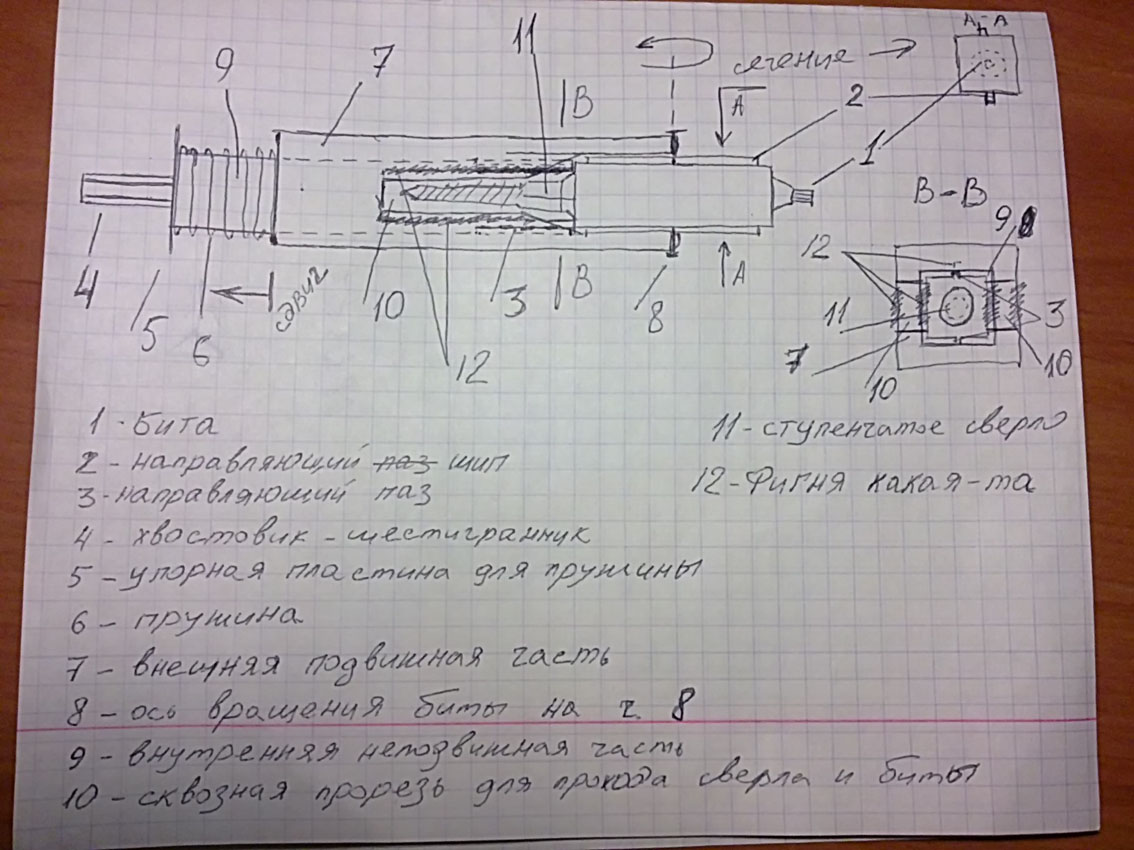 11
А-А
9
7
сечение
В
А
2
1
В-В
9
12
11
3
7
10
10
4
5
6
сдвиг
10
3
В
8
А
12
1 - Бита
2 - направляющий паз шип
3 - направляющий паз
4 - хвостовик - шестигранник
5 - упорная пластина для пружины
6 - пружина
7 - внешняя подвижная часть
8 - ось вращения биты на ч. 8
9 - внутренняя неподвижная часть
10 - сквозная прорезь для прохода сверла и биты
11 - ступенчатое сверло
12 - Фигня какая-та